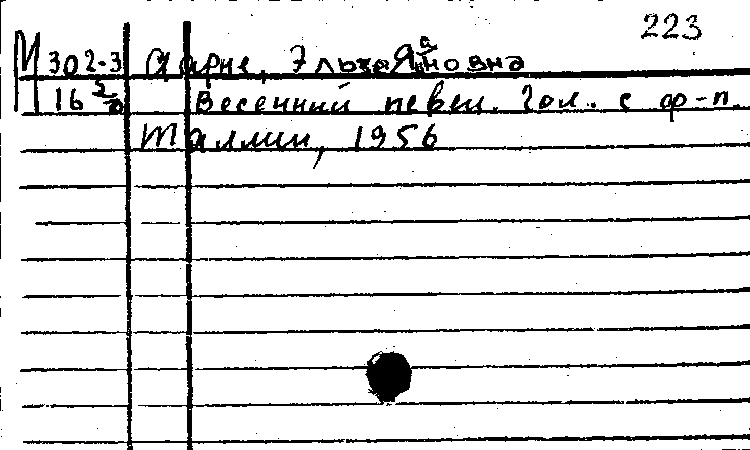 223
М 302-3 Аарне, Эльза Яановна
16 Весенний певец. Гол. с ф-п.
Таллин, 1956